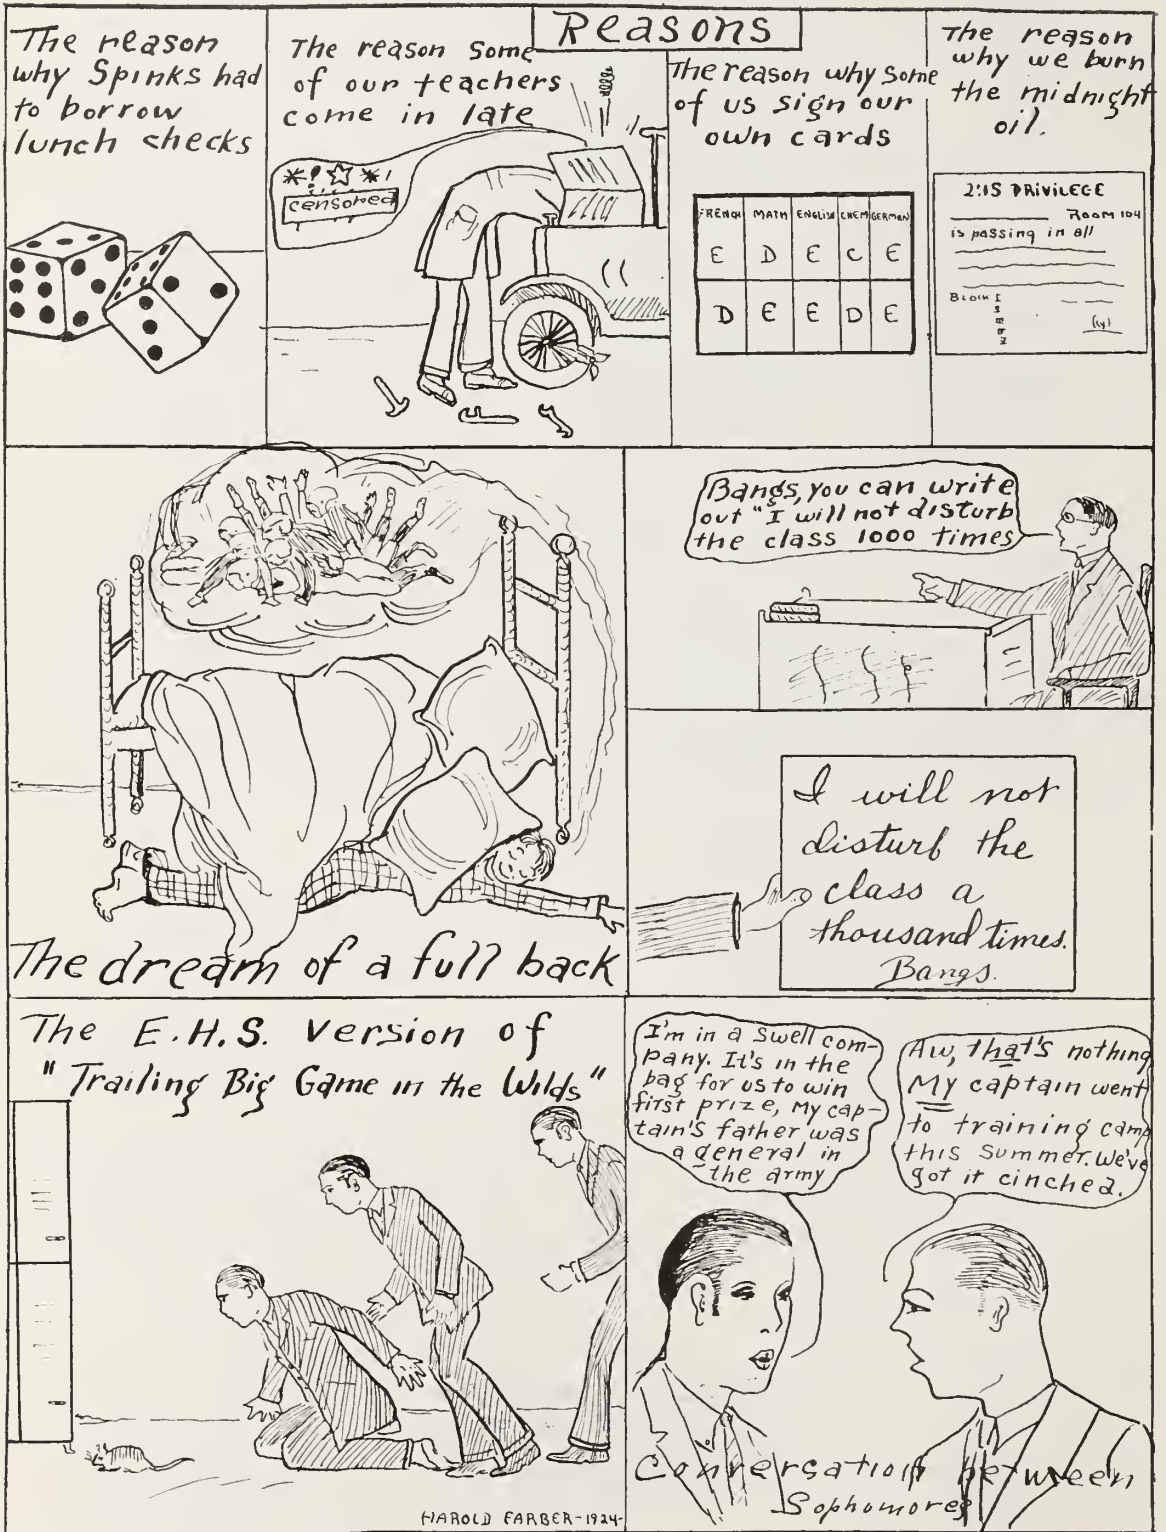 Reasons
The reason
why Spinks had
to borrow
lunch checks
The reason some
of our teachers
come in late
*!☆*!
censored
The reason why some
of us sign our
own cards
FRENCH MATH ENGLISH CHEM GERMAN
E D E C E
D E E D E
The reason
why we burn
the midnight
oil.
2:15 PRIVILEGE
Room 104
is passing in all
Block I
The dream of a full back
Bangs, you can write
out "I will not disturb
the class 1000 times
I will not
disturb the
class a
thousand times.
Bangs.
The E.H.S. version of
"Trailing Big Game in the Wilds"
HAROLD FARBER-1924-
I'm in a swell com-
pany. It's in the
bag for us to win
first prize, My cap-
tain's father was
a general in
the army
Aw, that's nothing
My captain went
to training camp
this Summer. We've
got it cinched.
Conversation between
Sophomores